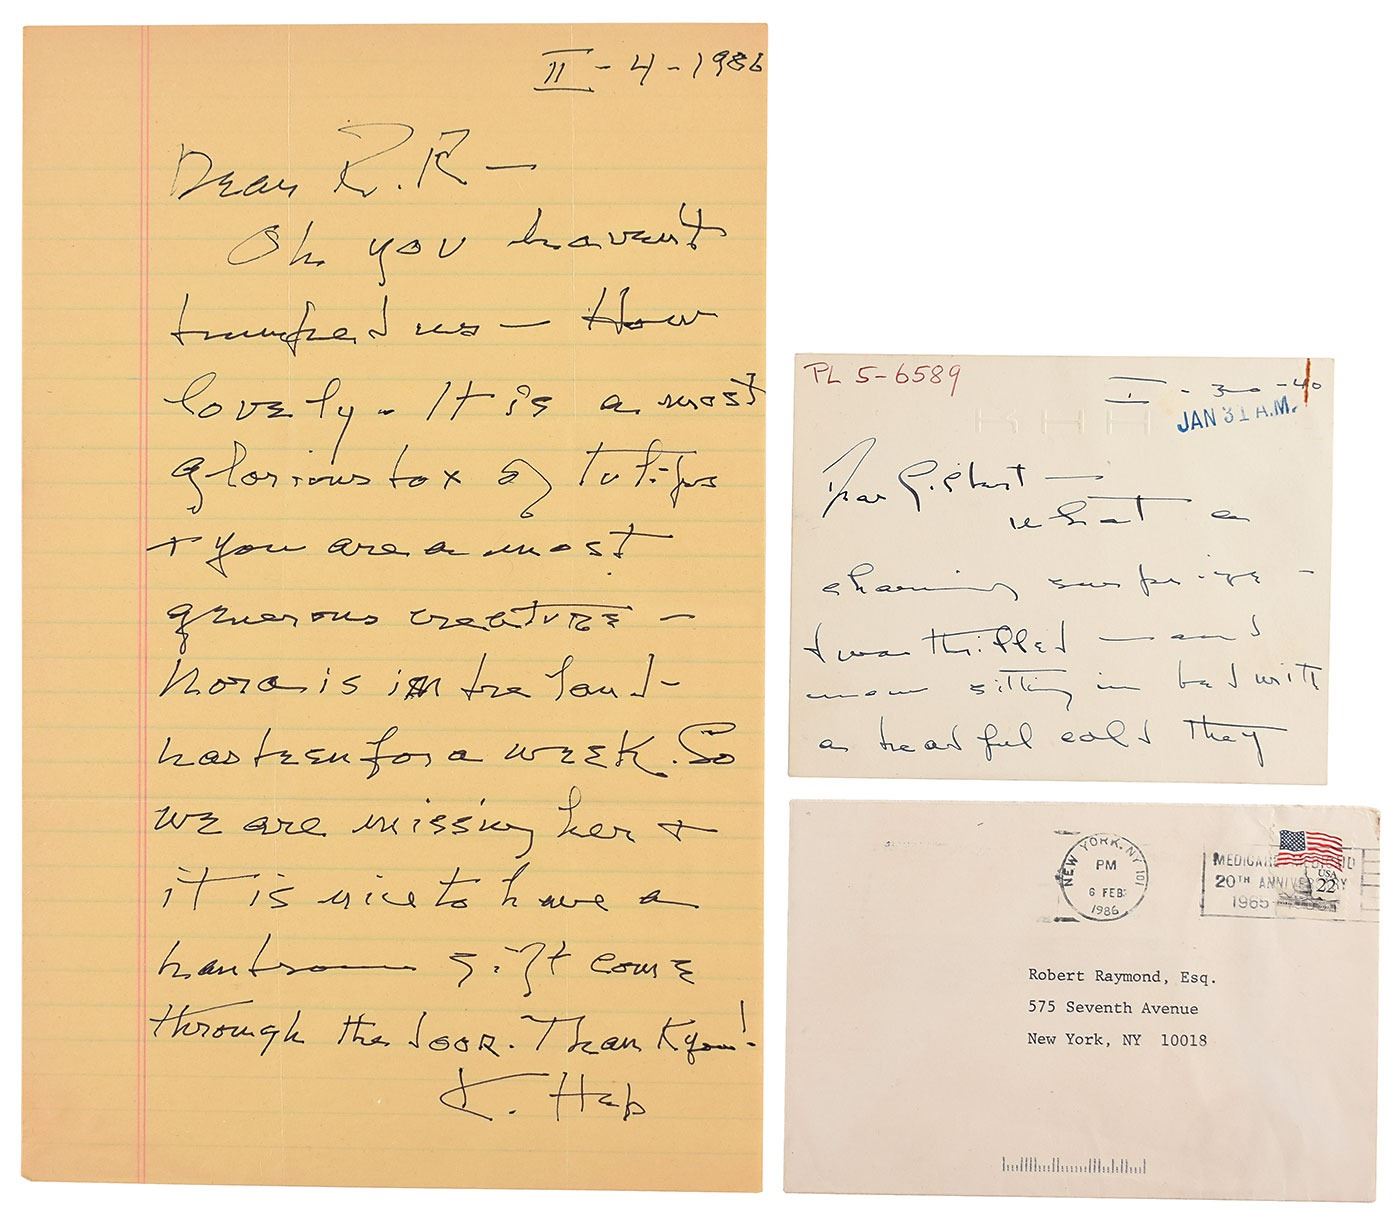 II - 4 - 1986
Dear R.R —
Oh you haven't
trumped us — How
lovely - It is a most
glorious box of tulips
+ you are a most
generous creature —
Nora is in Ireland -
has been for a week. So
we are missing her +
it is nice to have a
handsome gift come
through the door. Thank you!
K. Hep
PL 5-6589
I - 30 - 40
JAN 31 A.M.
KHH
Dear Gilbert —
what a
charming surprise -
I was thrilled — and
now sitting in bed with
a dreadful cold they
NEW YORK, NY 101
PM
6 FEB
1986
MEDICARE
20TH ANNIVERSARY
1965
USA
22
Robert Raymond, Esq.
575 Seventh Avenue
New York, NY 10018